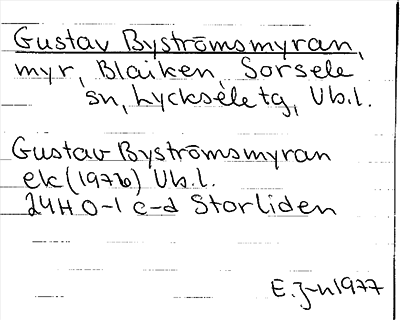 Gustav Byströmsmyran,
myr, Blaiken, Sorsele
sn, Lycksele tg, Vb.l.
Gustav Byströmsmyran
ek (1976) Vb.l.
24H 0-1 c-d Storliden
E. J-n 1977